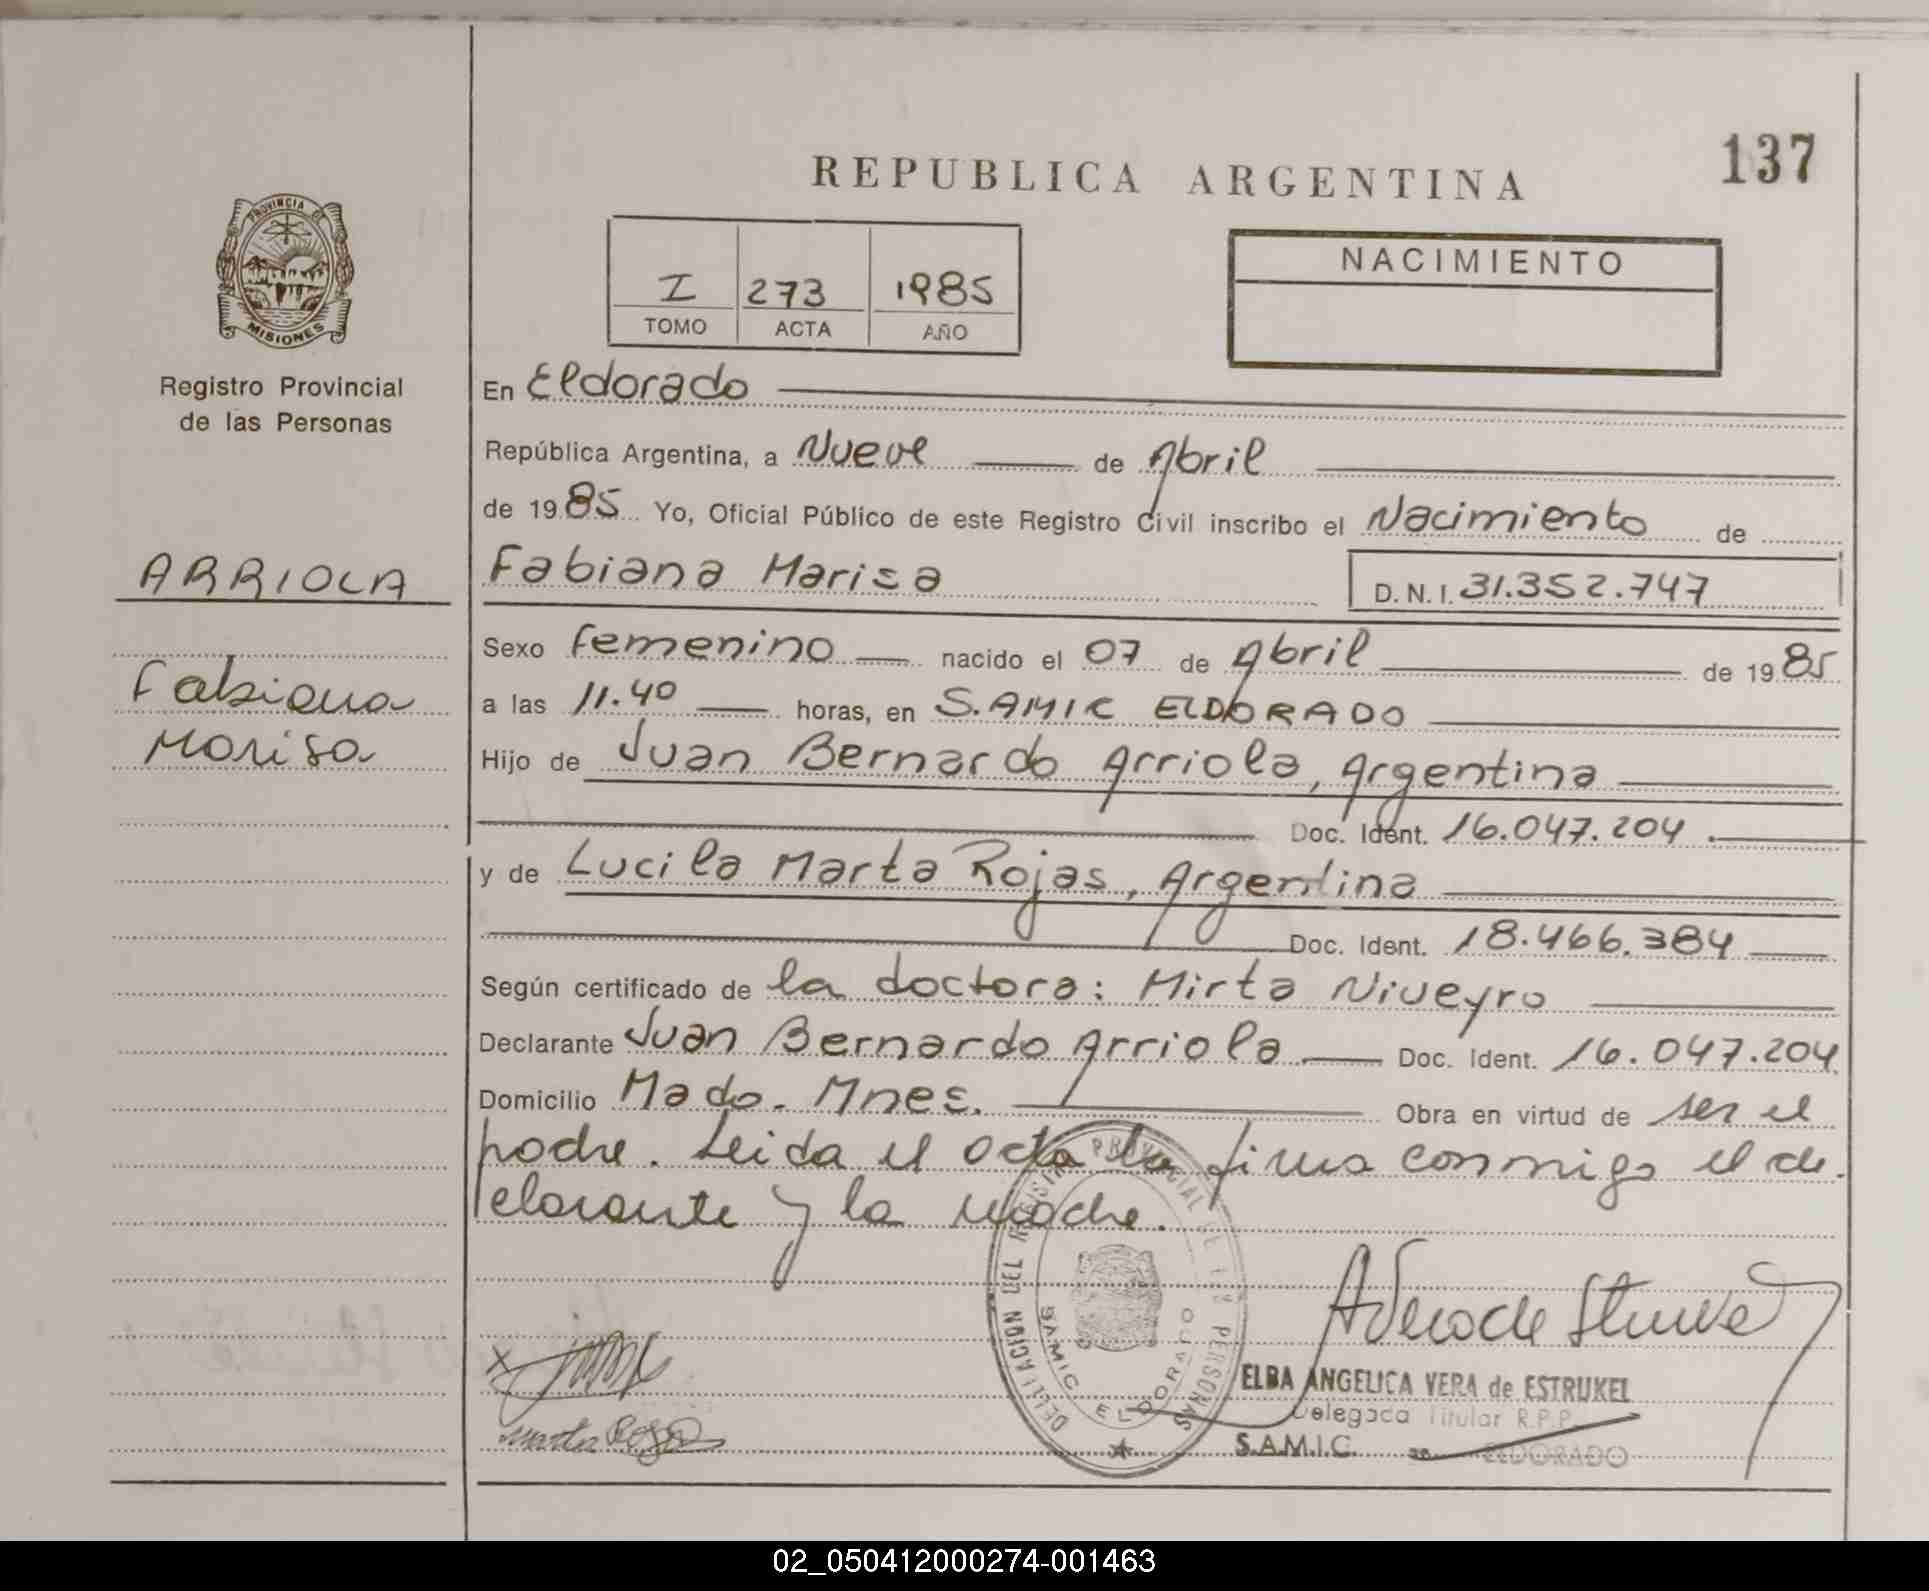 137
REPUBLICA ARGENTINA
PROVINCIA DE
MISIONES
Registro Provincial
de las Personas
I 273 1985
TOMO ACTA AÑO
NACIMIENTO
En Eldorado
República Argentina, a Nueve de Abril
de 1985 Yo, Oficial Público de este Registro Civil inscribo el Nacimiento de
ARRIOLA
Fabiana Marisa D.N.I. 31.352.747
Fabiana
Marisa
Sexo Femenino nacido el 07 de Abril de 1985
a las 11.40 horas, en S.AMIC ELDORADO
Hijo de Juan Bernardo Arriola, Argentina
Doc. Ident. 16.047.204
y de Lucila Marta Rojas, Argentina
Doc. Ident. 18.466.384
Según certificado de la doctora: Mirta Niveyro
Declarante Juan Bernardo Arriola Doc. Ident. 16.047.204
Domicilio Mado. Mnes. Obra en virtud de ser el
padre. Leida el acta la firma conmigo el de
clarante y la madre.
DELEGACION DEL REGISTRO PROVINCIAL DE LAS PERSONAS
SAMIC ELDORADO
Marta Rojas
ELBA ANGELICA VERA de ESTRUKEL
Delegada Titular R.P.P.
S.A.M.I.C. ELDORADO
02_050412000274-001463